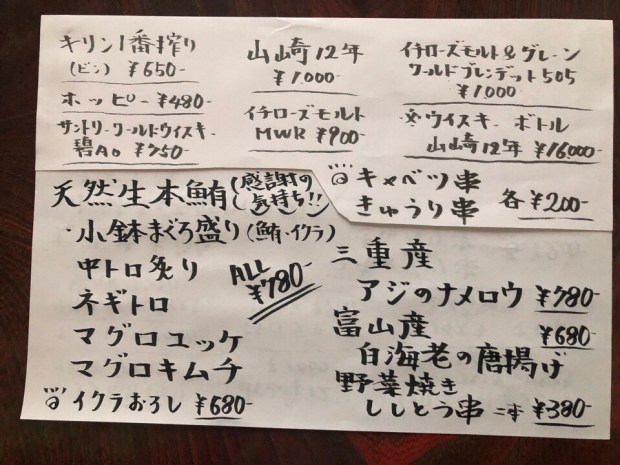 キリン一番搾り
(ビン) ¥650-
ホッピー ¥480-
サントリーワールドウイスキー
碧Ao ¥750-
山崎12年
¥1,000-
イチローズモルト
MWR ¥900-
イチローズモルト&グレーン
ワールドブレンデット505
¥1,000
ウイスキー ボトル
山崎12年 ¥16,000-
キャベツ串
きゅうり串
各 ¥200-
天然生本鮪 (感謝の気持ち!!)
・小鉢まぐろ盛り (鮪・イクラ)
中トロ炙り
ネギトロ
マグロユッケ
マグロキムチ
ALL ¥780-
イクラおろし ¥680-
三重産
アジのナメロウ ¥780-
富山産 ¥680-
白海老の唐揚げ
野菜焼き
ししとう串 二本 ¥380-